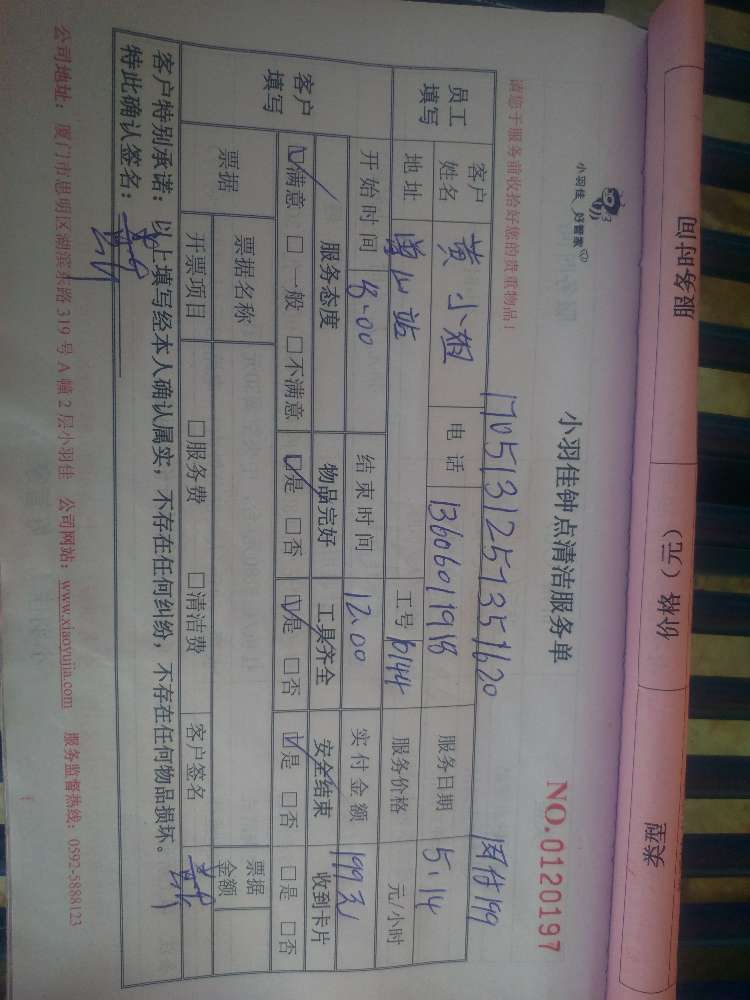 服务时间
价格（元）
类型
小羽佳 好管家
小羽佳钟点清洁服务单
NO.0120197
请您于服务前收拾好您的贵重物品！
网付199
员工填写
客户姓名 黄小姐 电话 13606011918 服务日期 5.14
地址 站 工号 6144 服务价格 元/小时
开始时间 8:00 结束时间 12:00 实付金额 199元
客户填写
服务态度 物品完好 工具齐全 安全结束 收到卡片
☑满意 □一般 □不满意 ☑是 □否 ☑是 □否 ☑是 □否 □是 □否
票据 票据名称 票据金额
开票项目 □服务费 □清洁费 客户签名
客户特别承诺：以上填写经本人确认属实，不存在任何纠纷，不存在任何物品损坏。
特此确认签名：
公司地址：厦门市思明区湖滨东路 319 号 A 幢 2 层小羽佳 公司网站：www.xiaoyujia.com 服务监督热线：0592-5888123